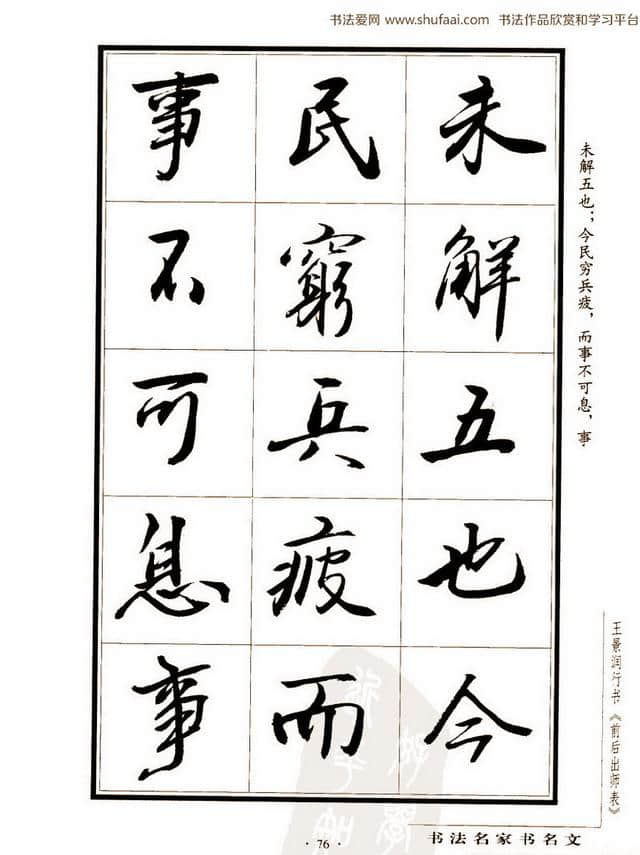 书法爱网 www.shufaai.com 书法作品欣赏和学习平台
未解五也今
民窮兵疲而
事不可息事
未解五也；今民穷兵疲，而事不可息，事
王景润行书《前后出师表》
· 76 ·
书法名家书名文